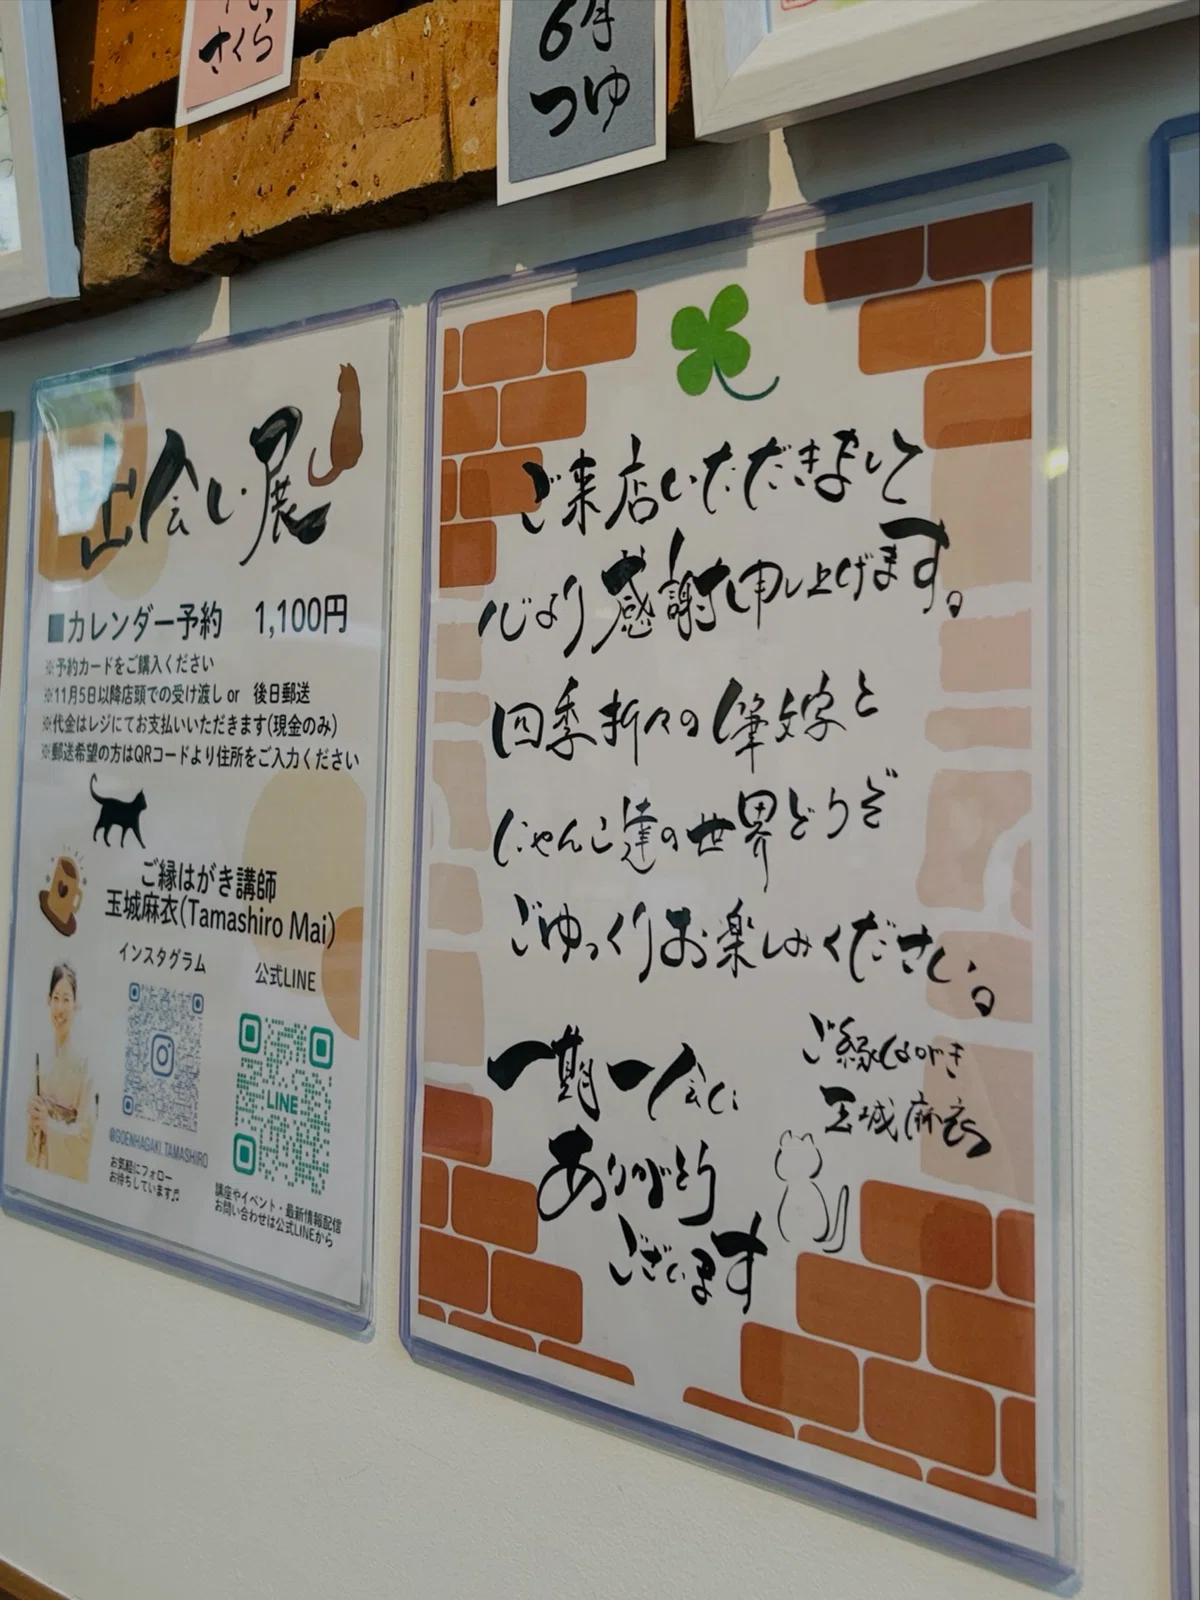 さくら
6月
つゆ
出会い展
■カレンダー予約 1,100円
※予約カードをご購入ください
※11月5日以降店頭での受け渡し or 後日郵送
※代金はレジにてお支払いいただきます(現金のみ)
※郵送希望の方はQRコードより住所をご入力ください
ご縁はがき講師
玉城麻衣(Tamashiro Mai)
インスタグラム
公式LINE
LINE
@GOENHAGAKI.TAMASHIRO
お気軽にフォロー
お待ちしています♬
講座やイベント・最新情報配信
お問い合わせは公式LINEから
ご来店いただきまして
心より感謝申し上げます。
四季折々の筆文字と
にゃんこ達の世界どうぞ
ごゆっくりお楽しみください。
一期一会に
ありがとう
ございます
ご縁はがき
玉城麻衣